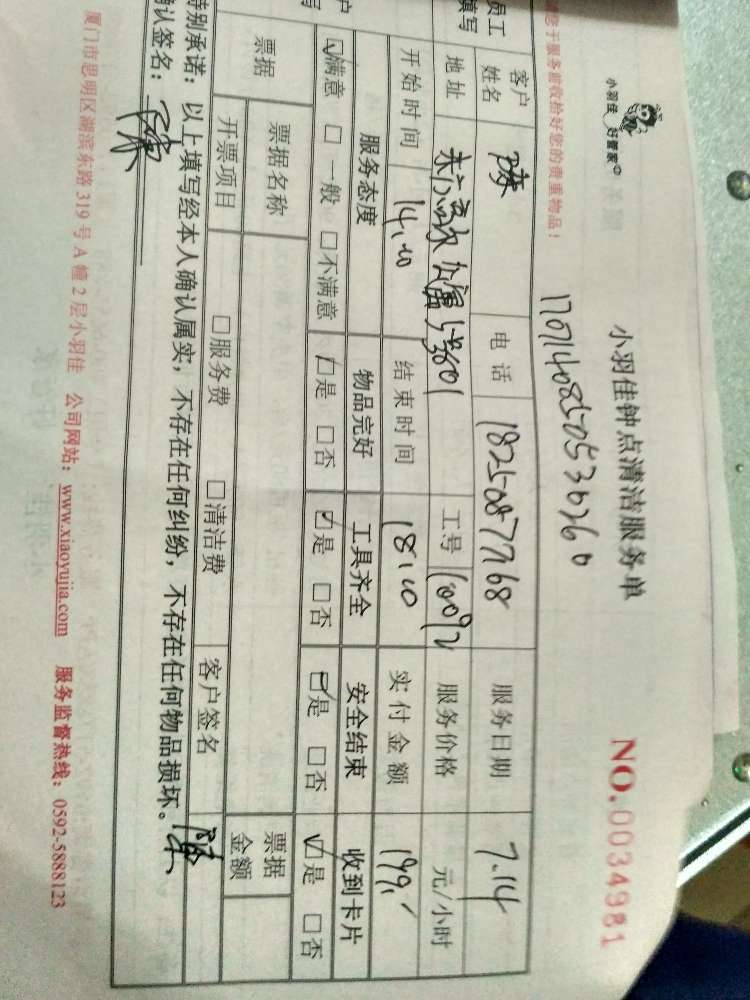 小羽佳 好管家
小羽佳钟点清洁服务单
NO.0034981
您于服务前收拾好您的贵重物品!
170714085053036260
员工
填写
客户姓名 陈 电话 18250877768 服务日期 7.14
地址 5号3601 工号 160092 服务价格 元/小时
开始时间 14:10 结束时间 18:10 实付金额 199.
户
写
服务态度 物品完好 工具齐全 安全结束 收到卡片
☑满意 □一般 □不满意 ☑是 □否 ☑是 □否 ☑是 □否 ☑是 □否
票据 票据名称 票据金额
开票项目 □服务费 □清洁费 客户签名 陈
特别承诺:以上填写经本人确认属实,不存在任何纠纷,不存在任何物品损坏。
确认签名:
厦门市思明区湖滨东路319号A幢2层小羽佳 公司网站:www.xiaoyujia.com 服务监督热线:0592-5888123